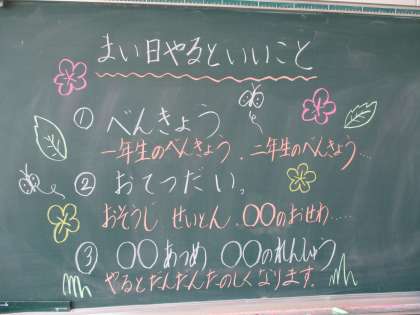 まい日やるといいこと
① べんきょう。
一年生のべんきょう、二年生のべんきょう…
② おてつだい。
おそうじ せいとん、○○のおせわ……
③ ○○あつめ ○○のれんしゅう
やるとだんだんたのしくなります。